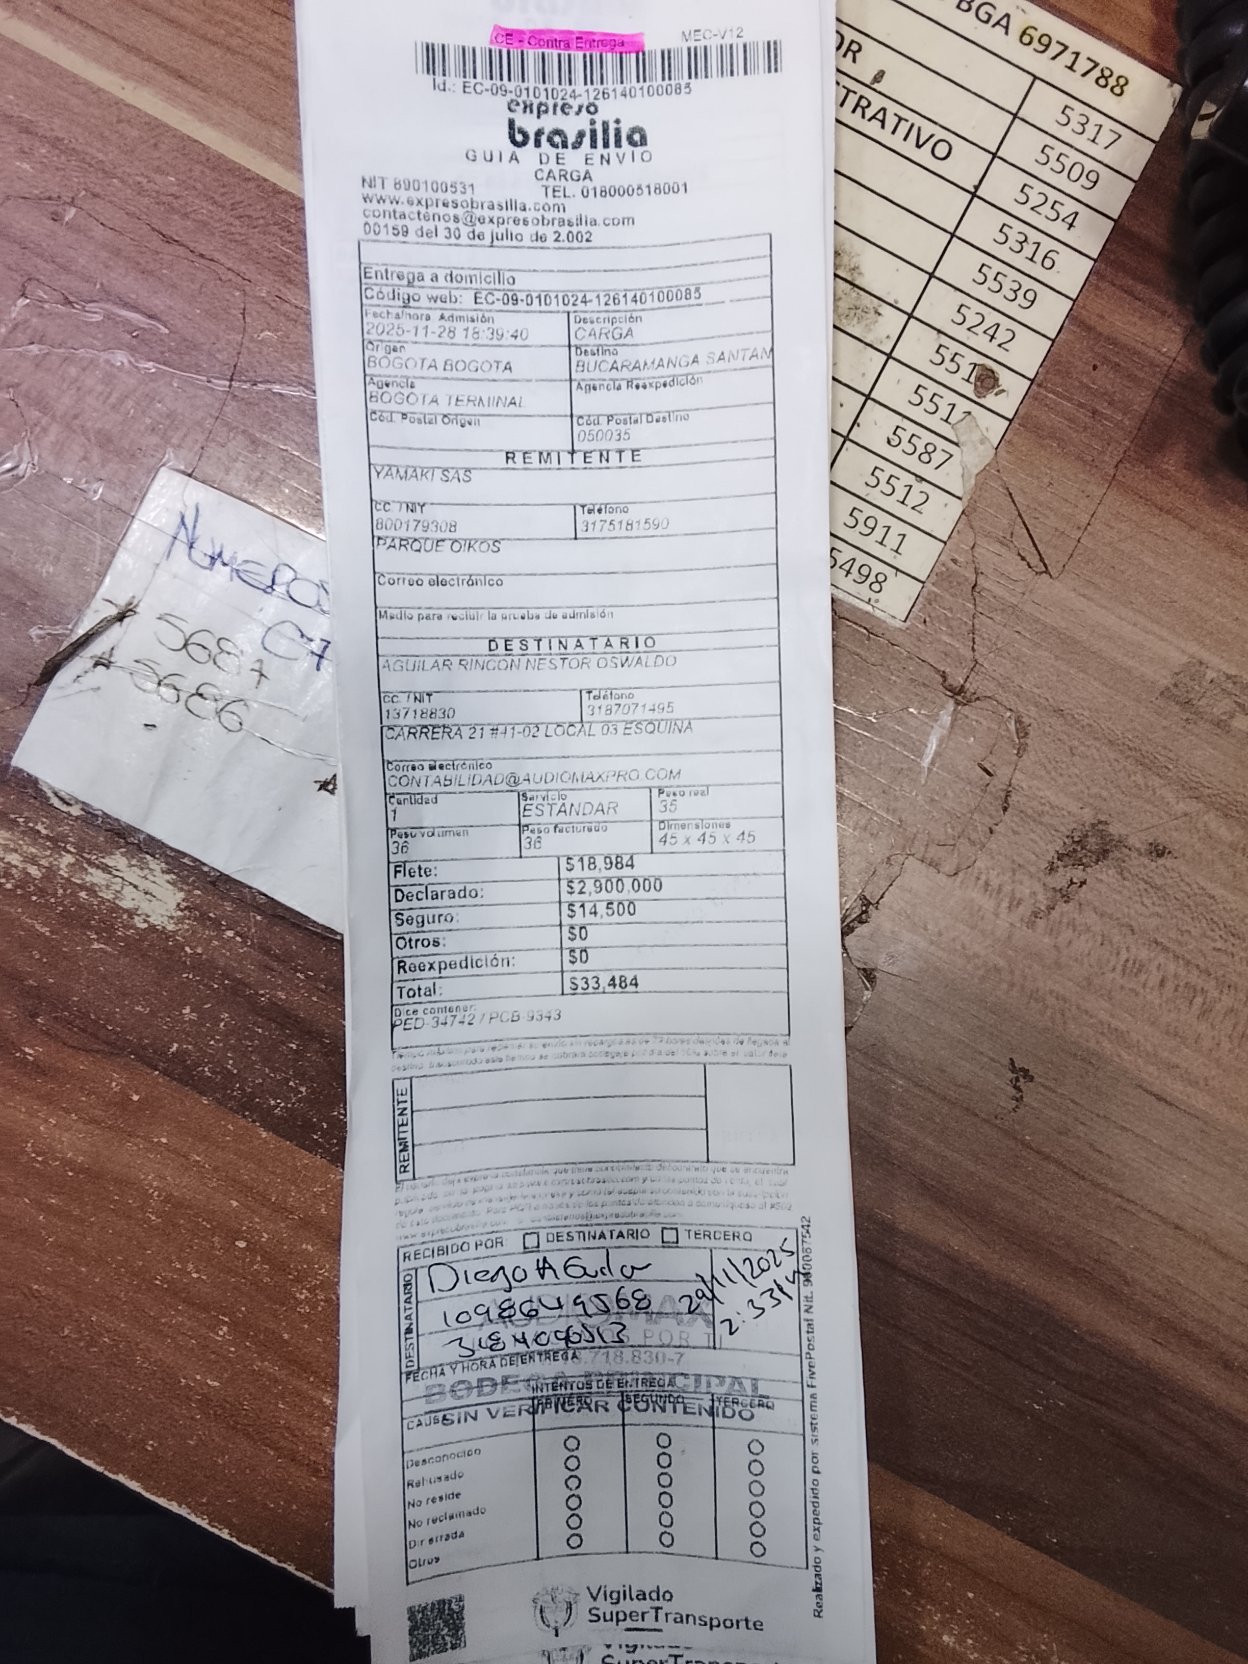 CE - Contra Entrega
MEC-V12
Id.: EC-09-0101024-126140100085
expreso
brasilia
GUIA DE ENVIO
CARGA
NIT 890100531 TEL. 018000518001
www.expresobrasilia.com
contactenos@expresobrasilia.com
00159 del 30 de julio de 2.002
Entrega a domicilio
Código web: EC-09-0101024-126140100085
Fecha/hora Admisión Descripción
2025-11-28 18:39:40 CARGA
Origen Destino
BOGOTA BOGOTA BUCARAMANGA SANTAN
Agencia Agencia Reexpedición
BOGOTA TERMINAL
Cód. Postal Origen Cód. Postal Destino
050035
REMITENTE
YAMAKI SAS
CC. / NIT Teléfono
800179308 3175181590
PARQUE OIKOS
Correo electrónico
Medio para recibir la prueba de admisión
DESTINATARIO
AGUILAR RINCON NESTOR OSWALDO
CC. / NIT Teléfono
13718830 3187071495
CARRERA 21 #41-02 LOCAL 03 ESQUINA
Correo electrónico
CONTABILIDAD@AUDIOMAXPRO.COM
Cantidad Servicio Peso real
1 ESTANDAR 35
Peso volumen Peso facturado Dimensiones
36 36 45 x 45 x 45
Flete: $18,984
Declarado: $2,900,000
Seguro: $14,500
Otros: $0
Reexpedición: $0
Total: $33,484
Dice contener:
PED-34742 / PCB-9343
REMITENTE
RECIBIDO POR: DESTINATARIO TERCERO
DESTINATARIO
Diego A
1098649568
29/11/2025
AUDIOMAX
POR TI
718.830-7
FECHA Y HORA DE ENTREGA
BODEGA PRINCIPAL
INTENTOS DE ENTREGA
PRIMERO SEGUNDO TERCERO
SIN VERIFICAR CONTENIDO
Desconocido
Rehusado
No reside
No reclamado
Dir errada
Otros
Realizado y expedido por sistema FivePostal Nit.
Vigilado
SuperTransporte
SuperTransporte
BGA 6971788
OR
5317
TRATIVO
5509
5254
5316
5539
5242
551
551
5587
5512
5911
5498
NUMEROS
C7
5687
5686